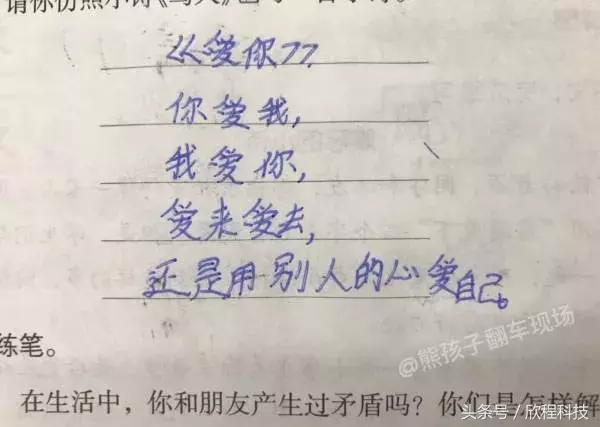 请你仿照小诗《骂人》也写一首小诗。
《爱你》
你爱我，
我爱你，
爱来爱去，
还是用别人的心爱自己。
@熊孩子翻车现场
练笔。
在生活中，你和朋友产生过矛盾吗？你们是怎样解
头条号/欣程科技